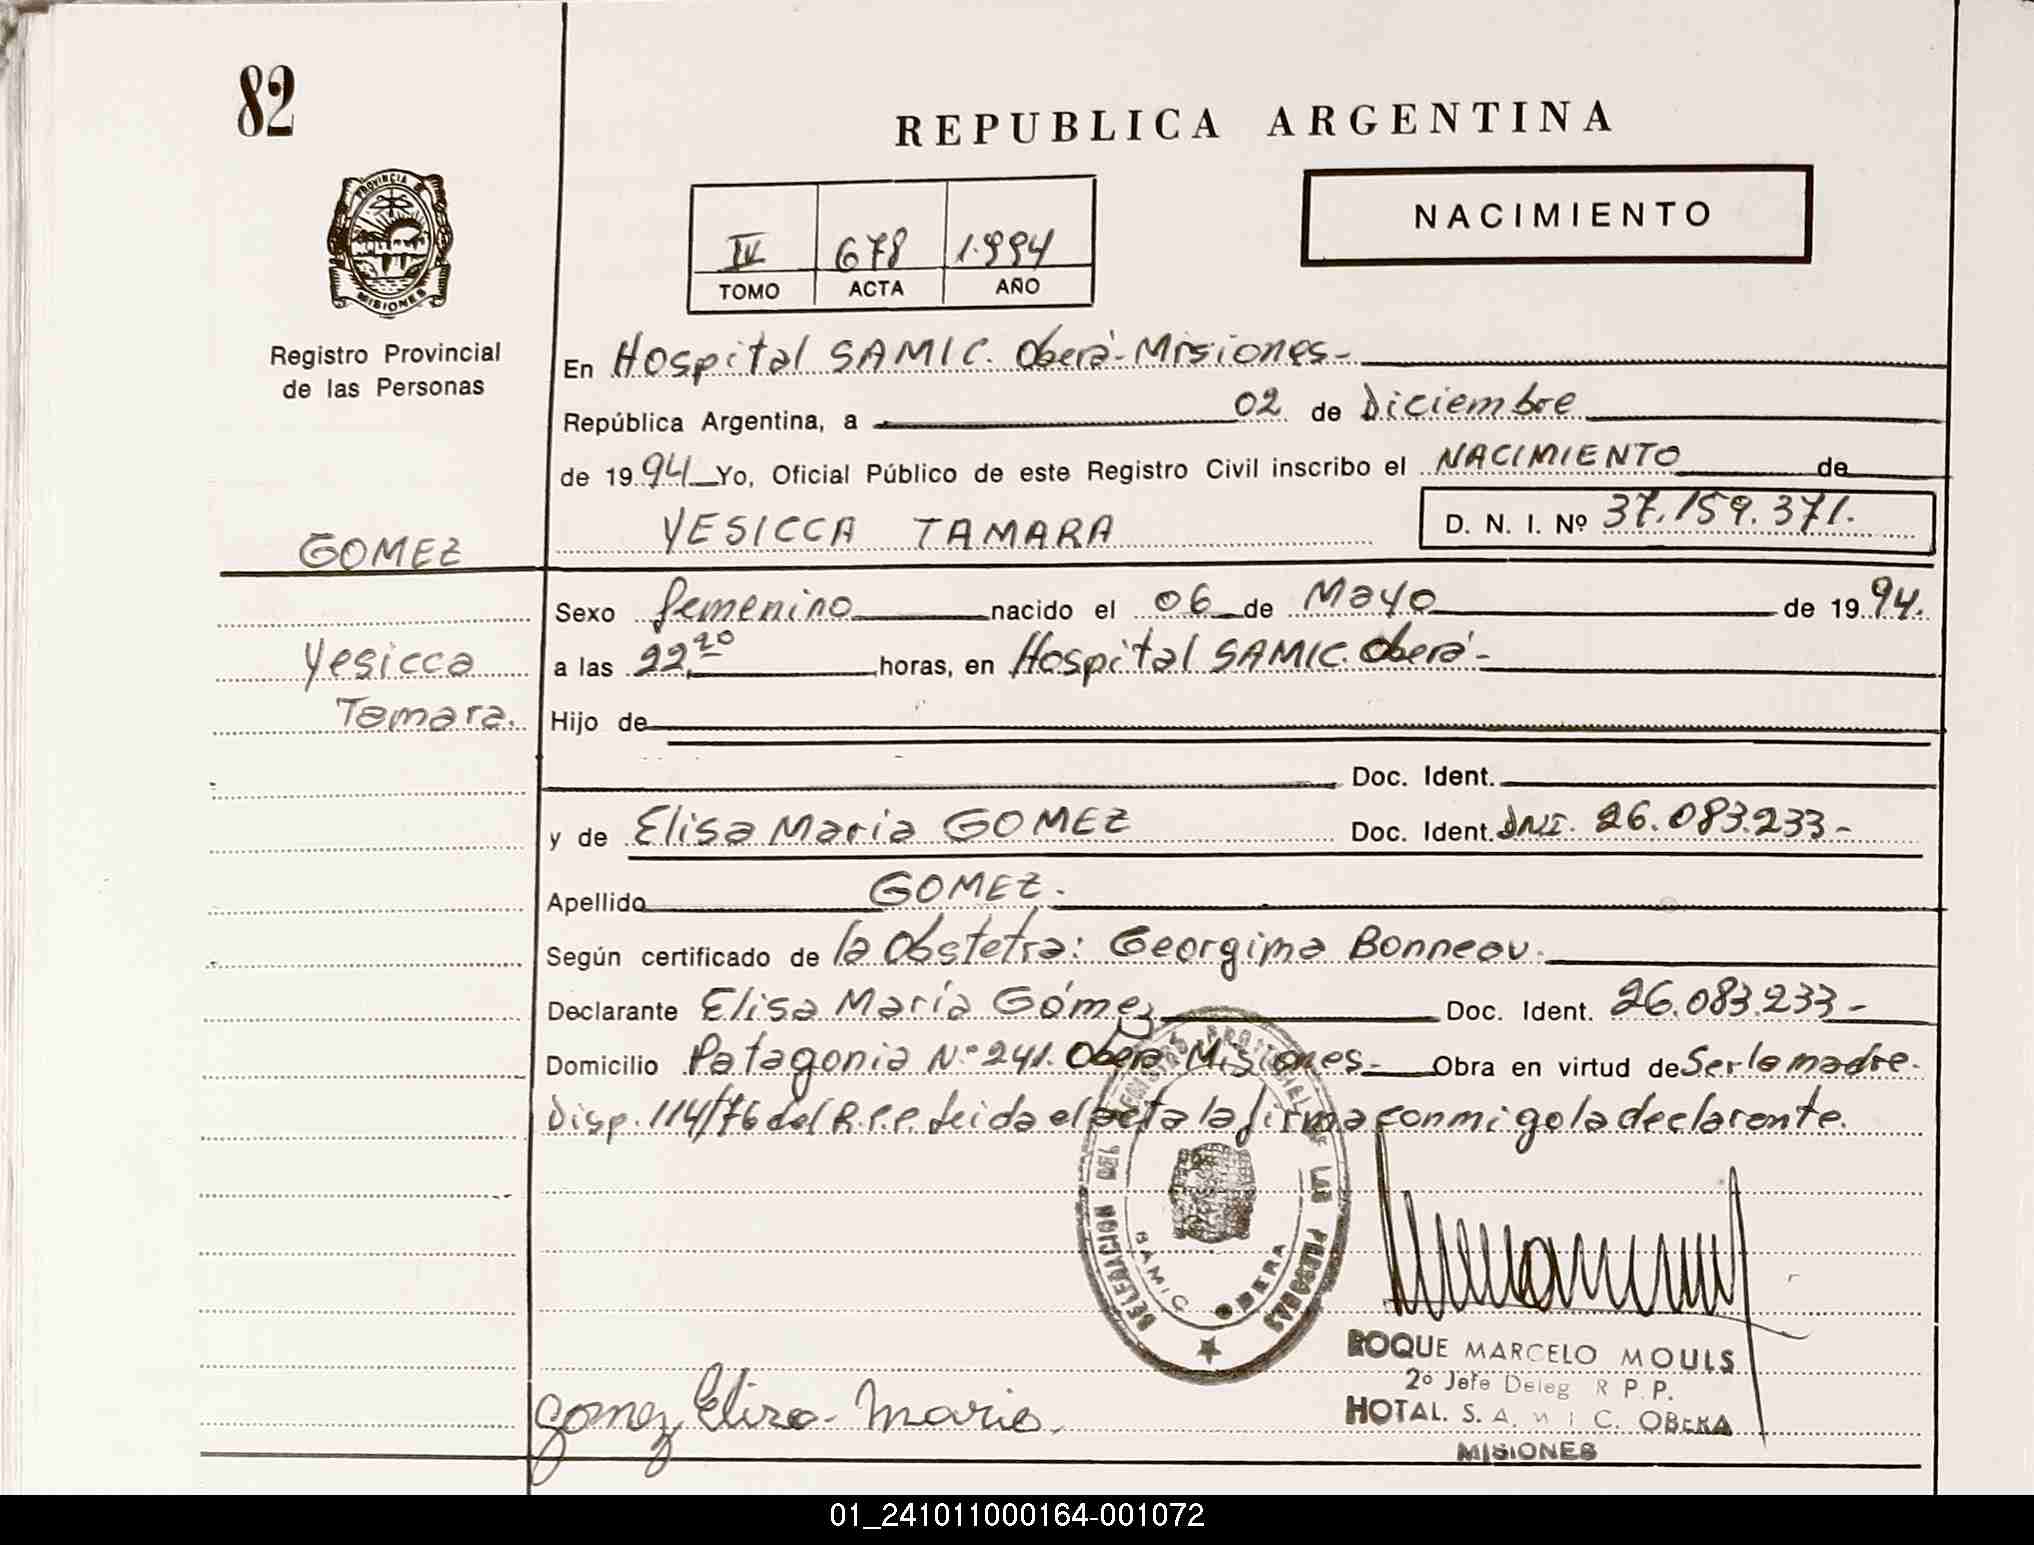 82
REPUBLICA ARGENTINA
PROVINCIA D
MISIONES
NACIMIENTO
IV 678 1.994
TOMO ACTA AÑO
Registro Provincial
de las Personas
En Hospital SAMIC. Oberá-Misiones-
República Argentina, a 02 de Diciembre
de 1994 Yo, Oficial Público de este Registro Civil inscribo el NACIMIENTO de
YESICCA TAMARA D. N. I. Nº 37.159.371.
GOMEZ
Sexo femenino nacido el 06 de Mayo de 1994.
Yesicca
a las 22,20 horas, en Hospital SAMIC. Oberá-
Tamara.
Hijo de
Doc. Ident.
y de Elisa Maria GOMEZ Doc. Ident. DNI. 26.083.233-
Apellido GOMEZ.
Según certificado de la Obstetra: Georgima Bonneau.
Declarante Elisa María Gómez Doc. Ident. 26.083.233-
Domicilio Patagonia N° 241. Oberá Misiones- Obra en virtud de Ser la madre.
Disp. 114/76 del R.P.P. Leida el acta la firma conmigo la declarante.
DELEGACION DEL REGISTRO PROVINCIAL DE LAS PERSONAS
SAMIC OBERA
ROQUE MARCELO MOULS
2º Jefe Deleg R P.P.
HOTAL. S. A. M I C. OBERA
MISIONES
Gomez Elisa Maria.
01_241011000164-001072